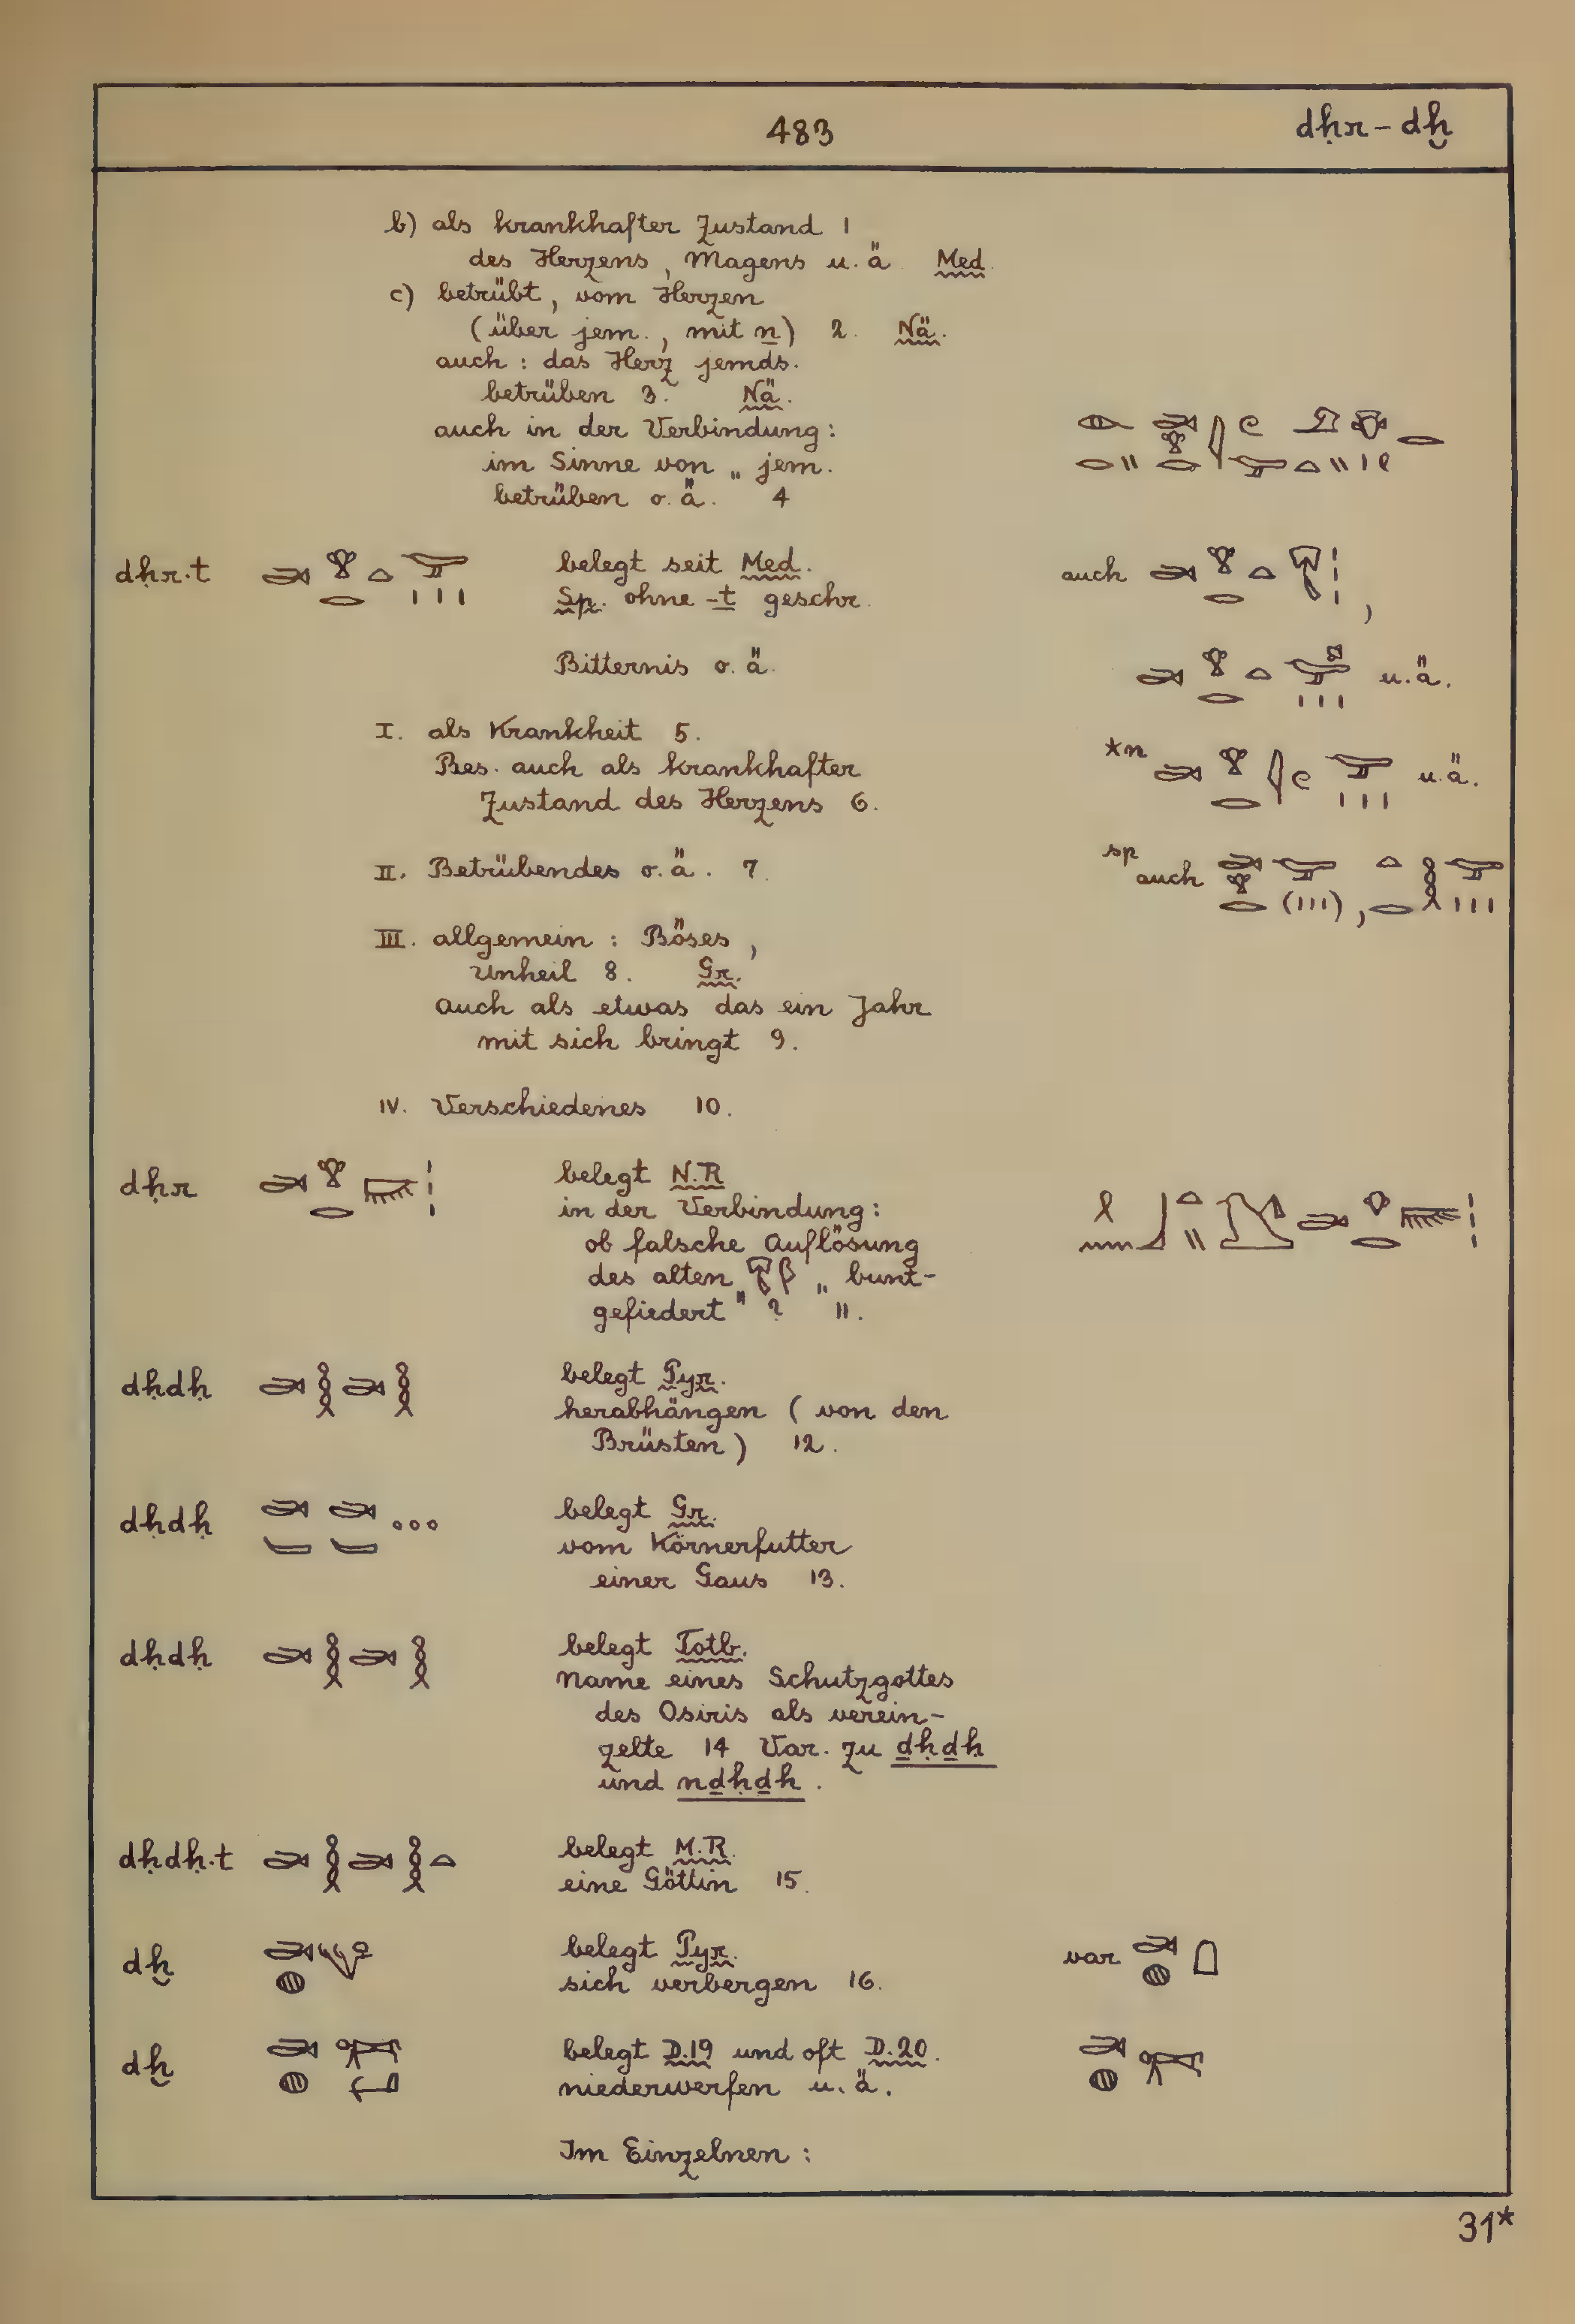 483
dḥr – dḫ
b) als krankhafter Zustand 1
des Herzens, Magens u. ä. Med.
c) betrübt, vom Herzen
(über jem., mit n) 2. Nä.
auch : das Herz jemds.
betrüben 3. Nä.
auch in der Verbindung :
im Sinne von „ jem.
betrüben o. ä." 4
dḥr.t belegt seit Med. auch
Sp. ohne -t geschr.
Bitternis o. ä. u. ä.
I. als Krankheit 5.
Bes. auch als krankhafter *n u. ä.
Zustand des Herzens 6.
II. Betrübendes o. ä. 7. sp auch
III. allgemein : Böses,
Unheil 8. Gr.
auch als etwas das ein Jahr
mit sich bringt 9.
IV. Verschiedenes 10.
dḥr belegt N.R
in der Verbindung :
ob falsche Auflösung
des alten „ bunt-
gefiedert " ? 11.
dḥdḥ belegt Pyr.
herabhängen ( von den
Brüsten ) 12.
dḥdḥ belegt Gr.
vom Körnerfutter
einer Gans 13.
dḥdḥ belegt Totb.
Name eines Schutzgottes
des Osiris als verein-
zelte 14 Var. zu ḏḥḏḥ
und nḏḥḏḥ .
dḥdḥ.t belegt M.R.
eine Göttin 15.
dḫ belegt Pyr. var
sich verbergen 16.
dḫ belegt D.19 und oft D.20.
niederwerfen u. ä.
Im Einzelnen :
31*